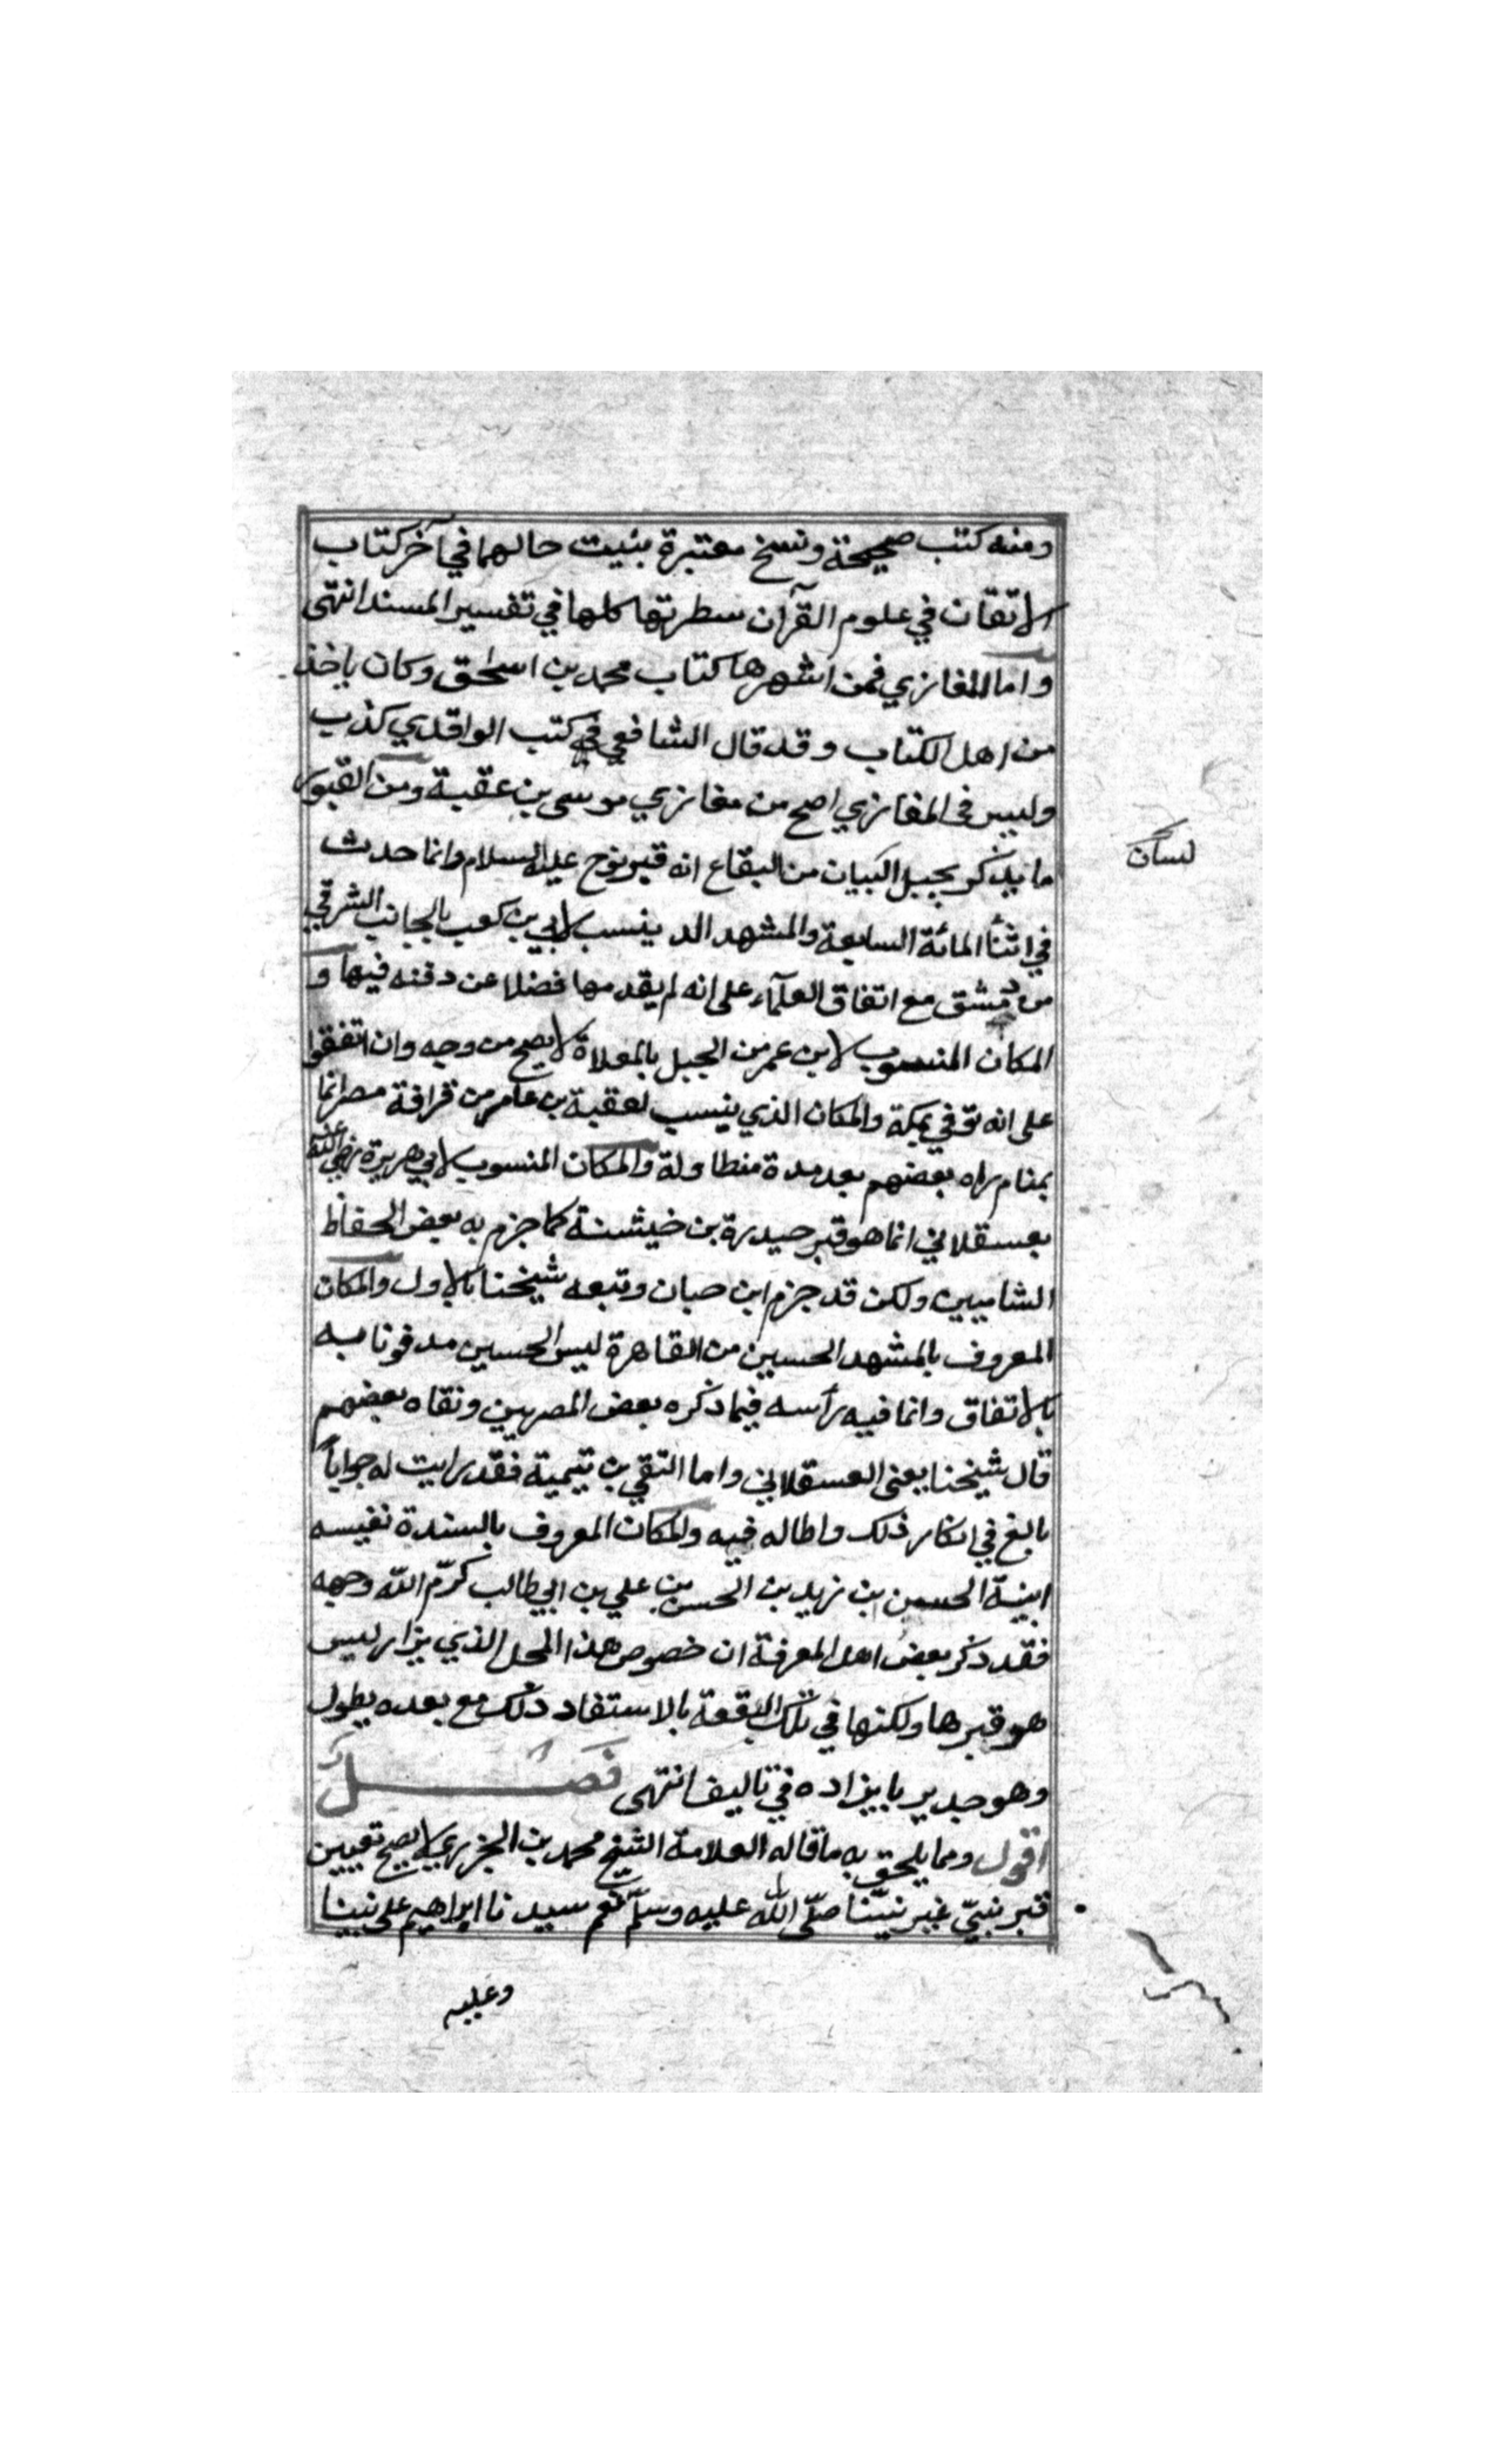 ومنه كتب صحيحة ونسخ معتبرة بنيت حالهما في آخر كتاب
الاتقان في علوم القرآن سطرتها كلها في تفسير المسند انتهى
واما المغازي فمن اشهرها كتاب محمد بن اسحق وكان ياخذ
من اهل الكتاب وقد قال الشافعي في كتب الواقدي كذب
وليس في المغازي اصح من مغازي موسى بن عقبة ومن القبور
ما يذكر بجبل البيان من البقاع انه قبر نوح عليه السلام وانما حدث
لبنان
في اثنا المائة السابعة والمشهد الذ ينسب لابي بن كعب بالجانب الشرقي
من دمشق مع اتفاق العلمآء على انه لم يقدمها فضلا عن دفنه فيها و
المكان المنسوب لابن عمر من الجبل بالمعلاة لا يصح من وجه وان اتفقوا
على انه توفي بمكة والمكان الذي ينسب لعقبة بن عامر من قرافة مصر انما
بمنام راه بعضهم بعد مدة منطاولة والمكان المنسوب لابي هريرة رضي الله عنه
بعسقلاني انما هو قبر حيدرة بن خيشنة كما جزم به بعض الحفاظ
الشاميين ولكن قد جزم ابن حبان وتبعه شيخنا بالاول والمكان
المعروف بالمشهد الحسين من القاهرة ليس الحسين مدفونا به
بالاتفاق وانما فيه رأسه فيما ذكره بعض المصريين ونفاه بعضهم
قال شيخنا يعني العسقلاني واما التقي بن تيمية فقد رايت له جواباً
بالغ في انكار ذلك واطاله فيه والمكان المعروف بالسندة نفيسه
ابنة الحسن بن زيد بن الحسن بن علي بن ابي طالب كرّم الله وجهه
فقد ذكر بعض اهل المعرفة ان خصوص هذا المحل الذي يزار ليس
هو قبرها ولكنها في تلك البقعة بالاستفاد ذلك مع بعده يطول
وهو جدير بايزاده في تاليف انتهى فصل
اقول ومما يلحق به ما قاله العلامة الشيخ محمد بن الجزري لا يصح تعيين
قبر نبيّ غير نبيّنا صلّى الله عليه وسلّم نعم سيدنا ابراهيم على نبينا
وعليه